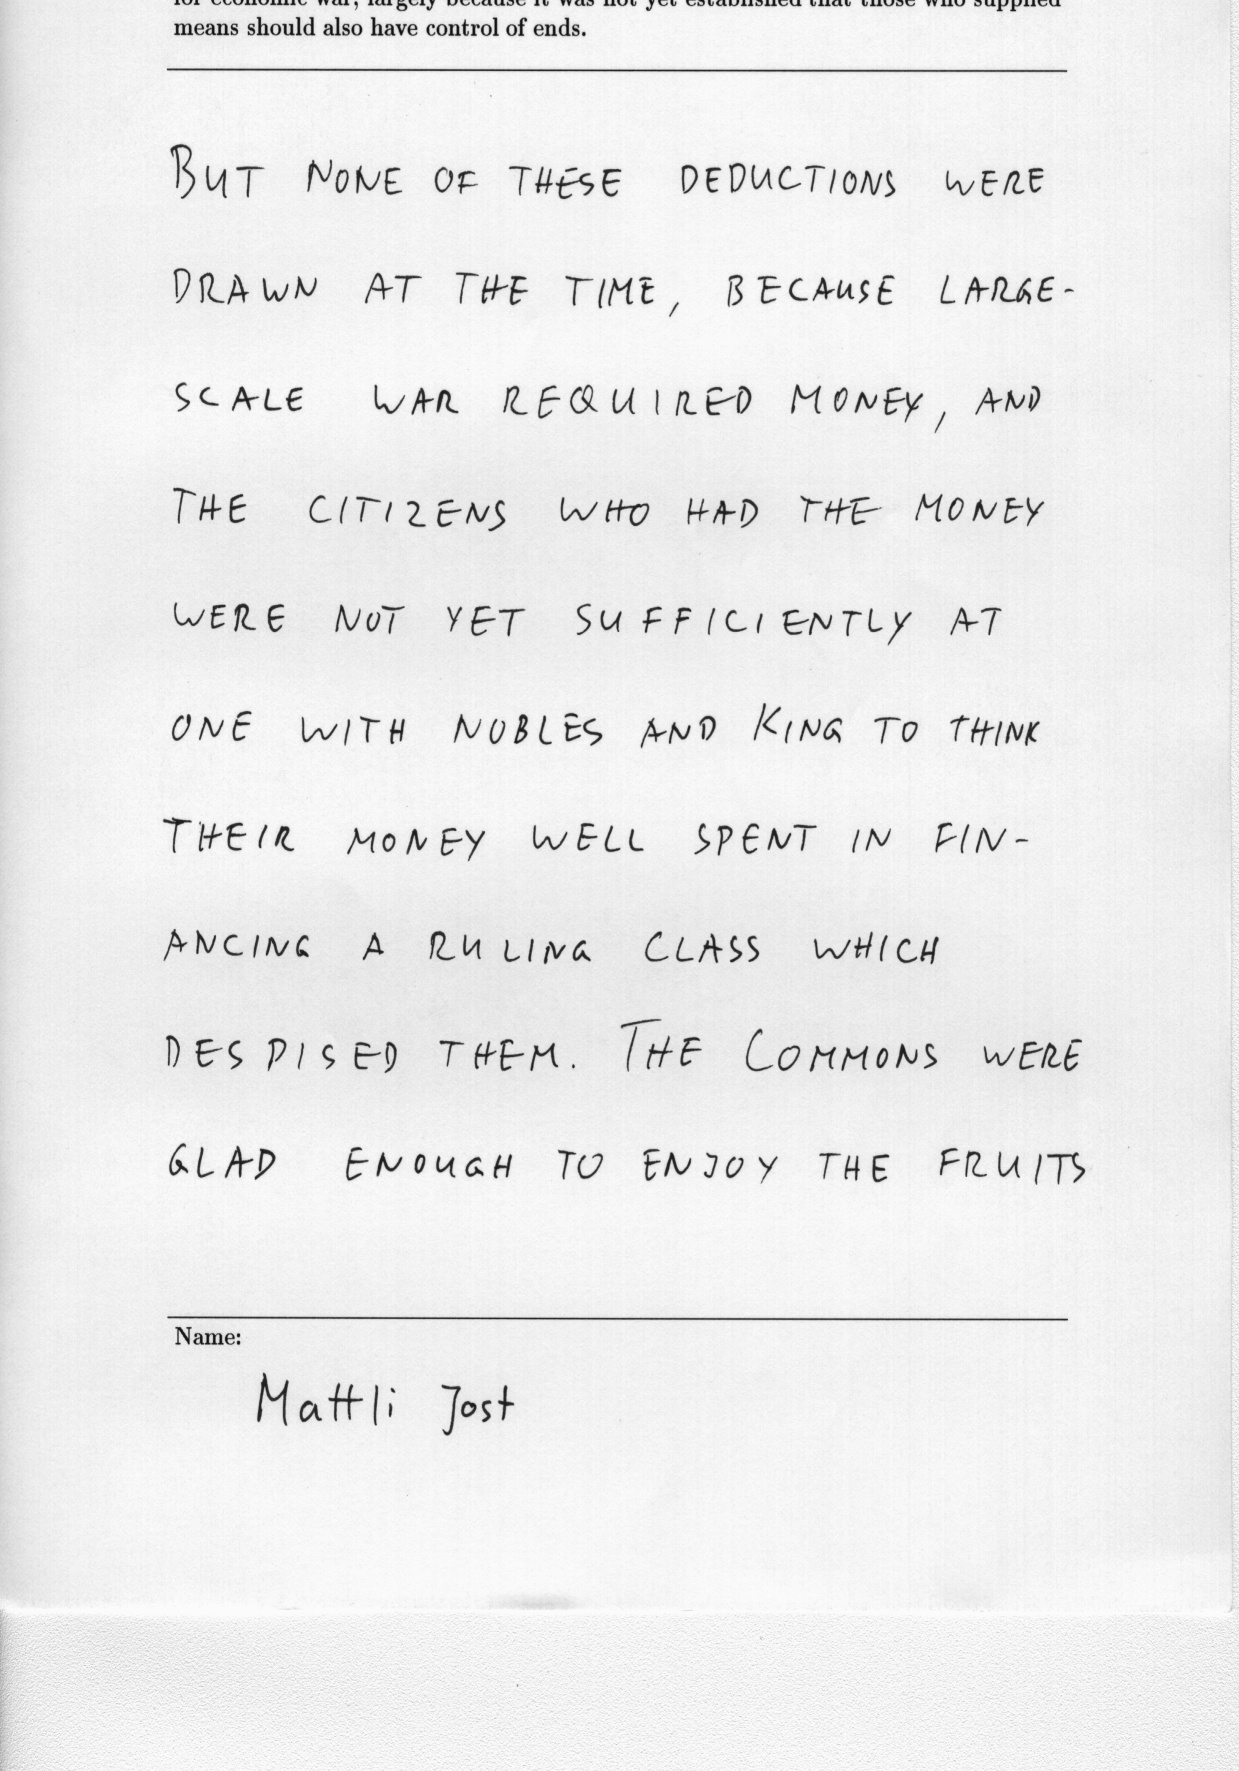 for economic war, largely because it was not yet established that those who supplied
means should also have control of ends.
BUT NONE OF THESE DEDUCTIONS WERE
DRAWN AT THE TIME, BECAUSE LARGE-
SCALE WAR REQUIRED MONEY, AND
THE CITIZENS WHO HAD THE MONEY
WERE NOT YET SUFFICIENTLY AT
ONE WITH NOBLES AND KING TO THINK
THEIR MONEY WELL SPENT IN FIN-
ANCING A RULING CLASS WHICH
DESPISED THEM. THE COMMONS WERE
GLAD ENOUGH TO ENJOY THE FRUITS
Name:
Mattli Jost